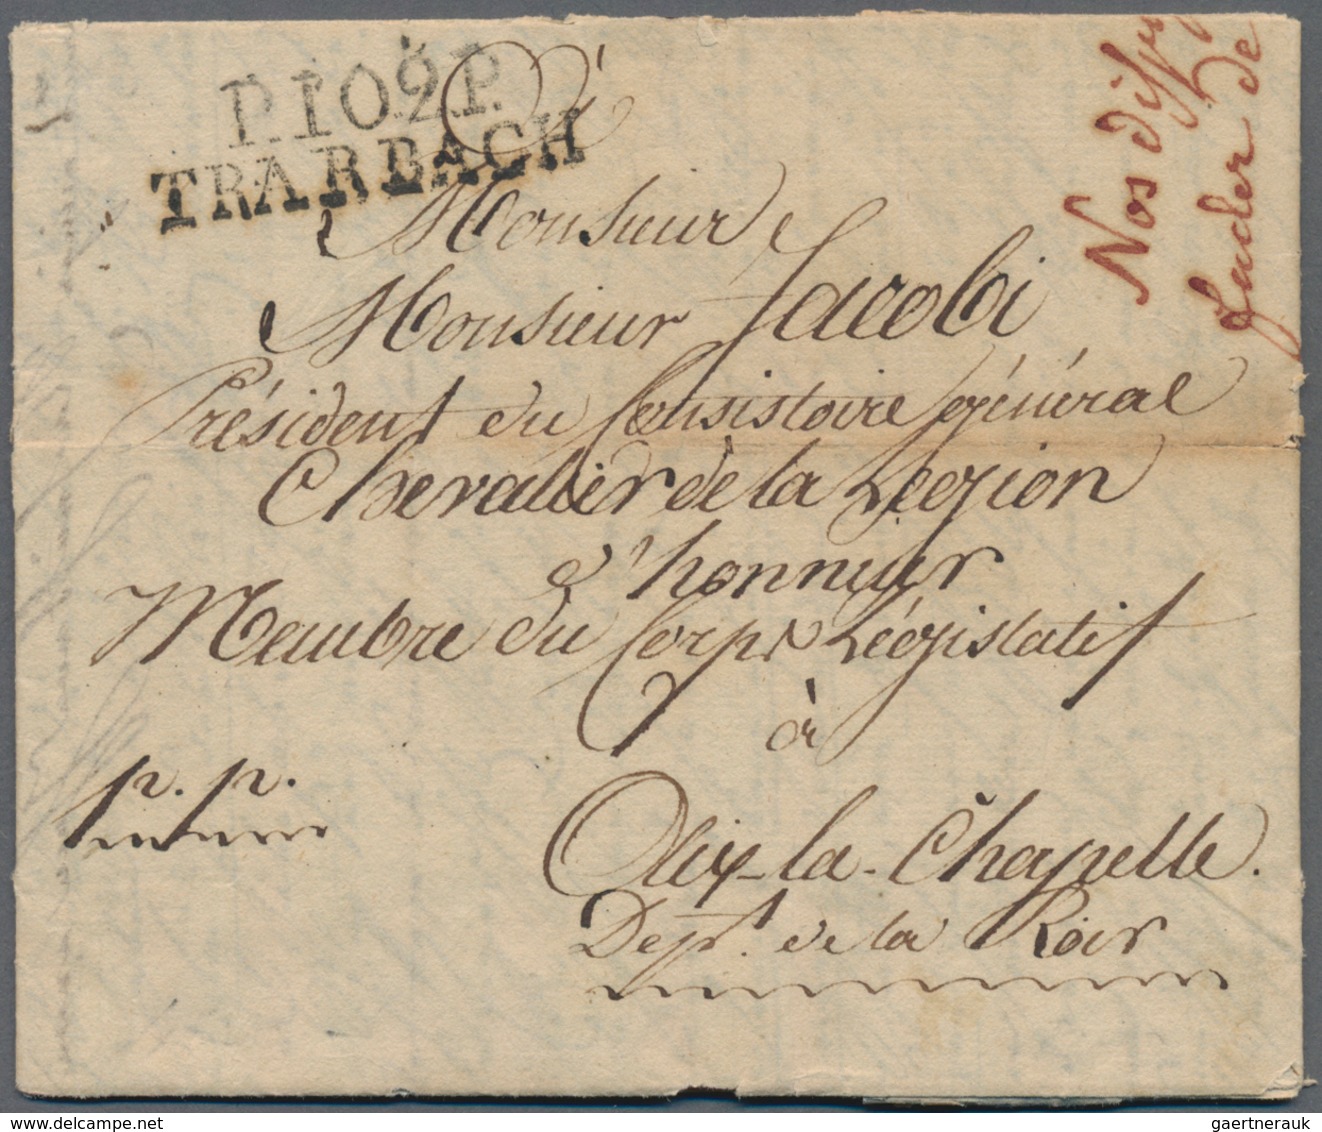 P.102.P.
TRARBACH
Monsieur
Monsieur Jacobi
Président du Consistoire général
Chevalier de la Legion
d'honneur
Membre du Corps Législatif
à
Aix-la-Chapelle.
Dept. de la Roer
p. p.
Nos
de
gaertnerauk